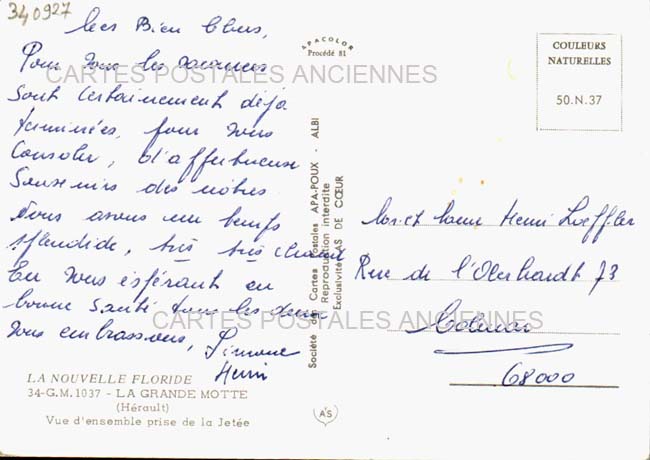 340927
Mes Bien Chers,
Pour vous les vacances
sont certainement déjà
terminées, pour vous
consoler, d'affectueux
souvenirs des nôtres
Nous avons un temps
splendide, très très chaud
En vous espérant en
bonne santé tous les deux
vous embrassons, Simone
Henri
LA NOUVELLE FLORIDE
34-G.M. 1037 - LA GRANDE MOTTE
(Hérault)
Vue d'ensemble prise de la Jetée
APACOLOR
Procédé 81
Société des Cartes Postales APA-POUX - ALBI
Reproduction interdite
Exclusivité AS DE CŒUR
AS
COULEURS
NATURELLES
50.N.37
Mr et Mme Henri Loeffler
Rue de l'Oberhardt 73
Colmar
68000
CARTES POSTALES ANCIENNES
CARTES POSTALES ANCIENNES